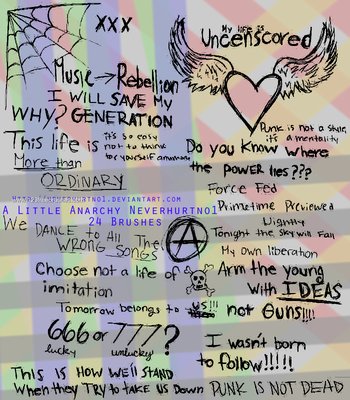 XXX
My life is
Uncenscored
Music → Rebellion
I WILL SAVE My
WHY? GENERATION
Punk is not a style,
it's a mentality
This life is
More than
ORDINARY
it's so easy
not to think
for yourself anymore
Do you Know Where
the POWER lies???
Force Fed
Primetime Previewed
A Little Anarchy Neverhurtno1
24 Brushes
We DANCE to All The
WRONG SONGS
A
Tonight the sky will Fall
My own liberation
Choose not a life of
imitation
Arm the young
With IDEAS
not Guns!!!!
Tomorrow belongs to us!!!
666 or 777?
lucky unlucky
I wasn't born
to follow!!!!!
This is How we'll STAND
When they TRY to TAKE US Down
PUNK IS NOT DEAD